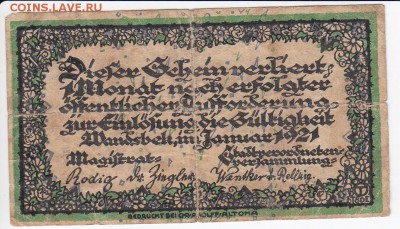 COINS.LAVE.RU
Dieser Schein verliert
1 Monat nach erfolgter
öffentlicher Aufforderung
zur Einlösung die Gültigkeit
Wandsbek, im Januar 1921
Magistrat- Stadtverordneten-
versammlung-
Rodig Dr. Ziegler Wentker
GEDRUCKT BEI CHR. ADOLFF-ALTONA